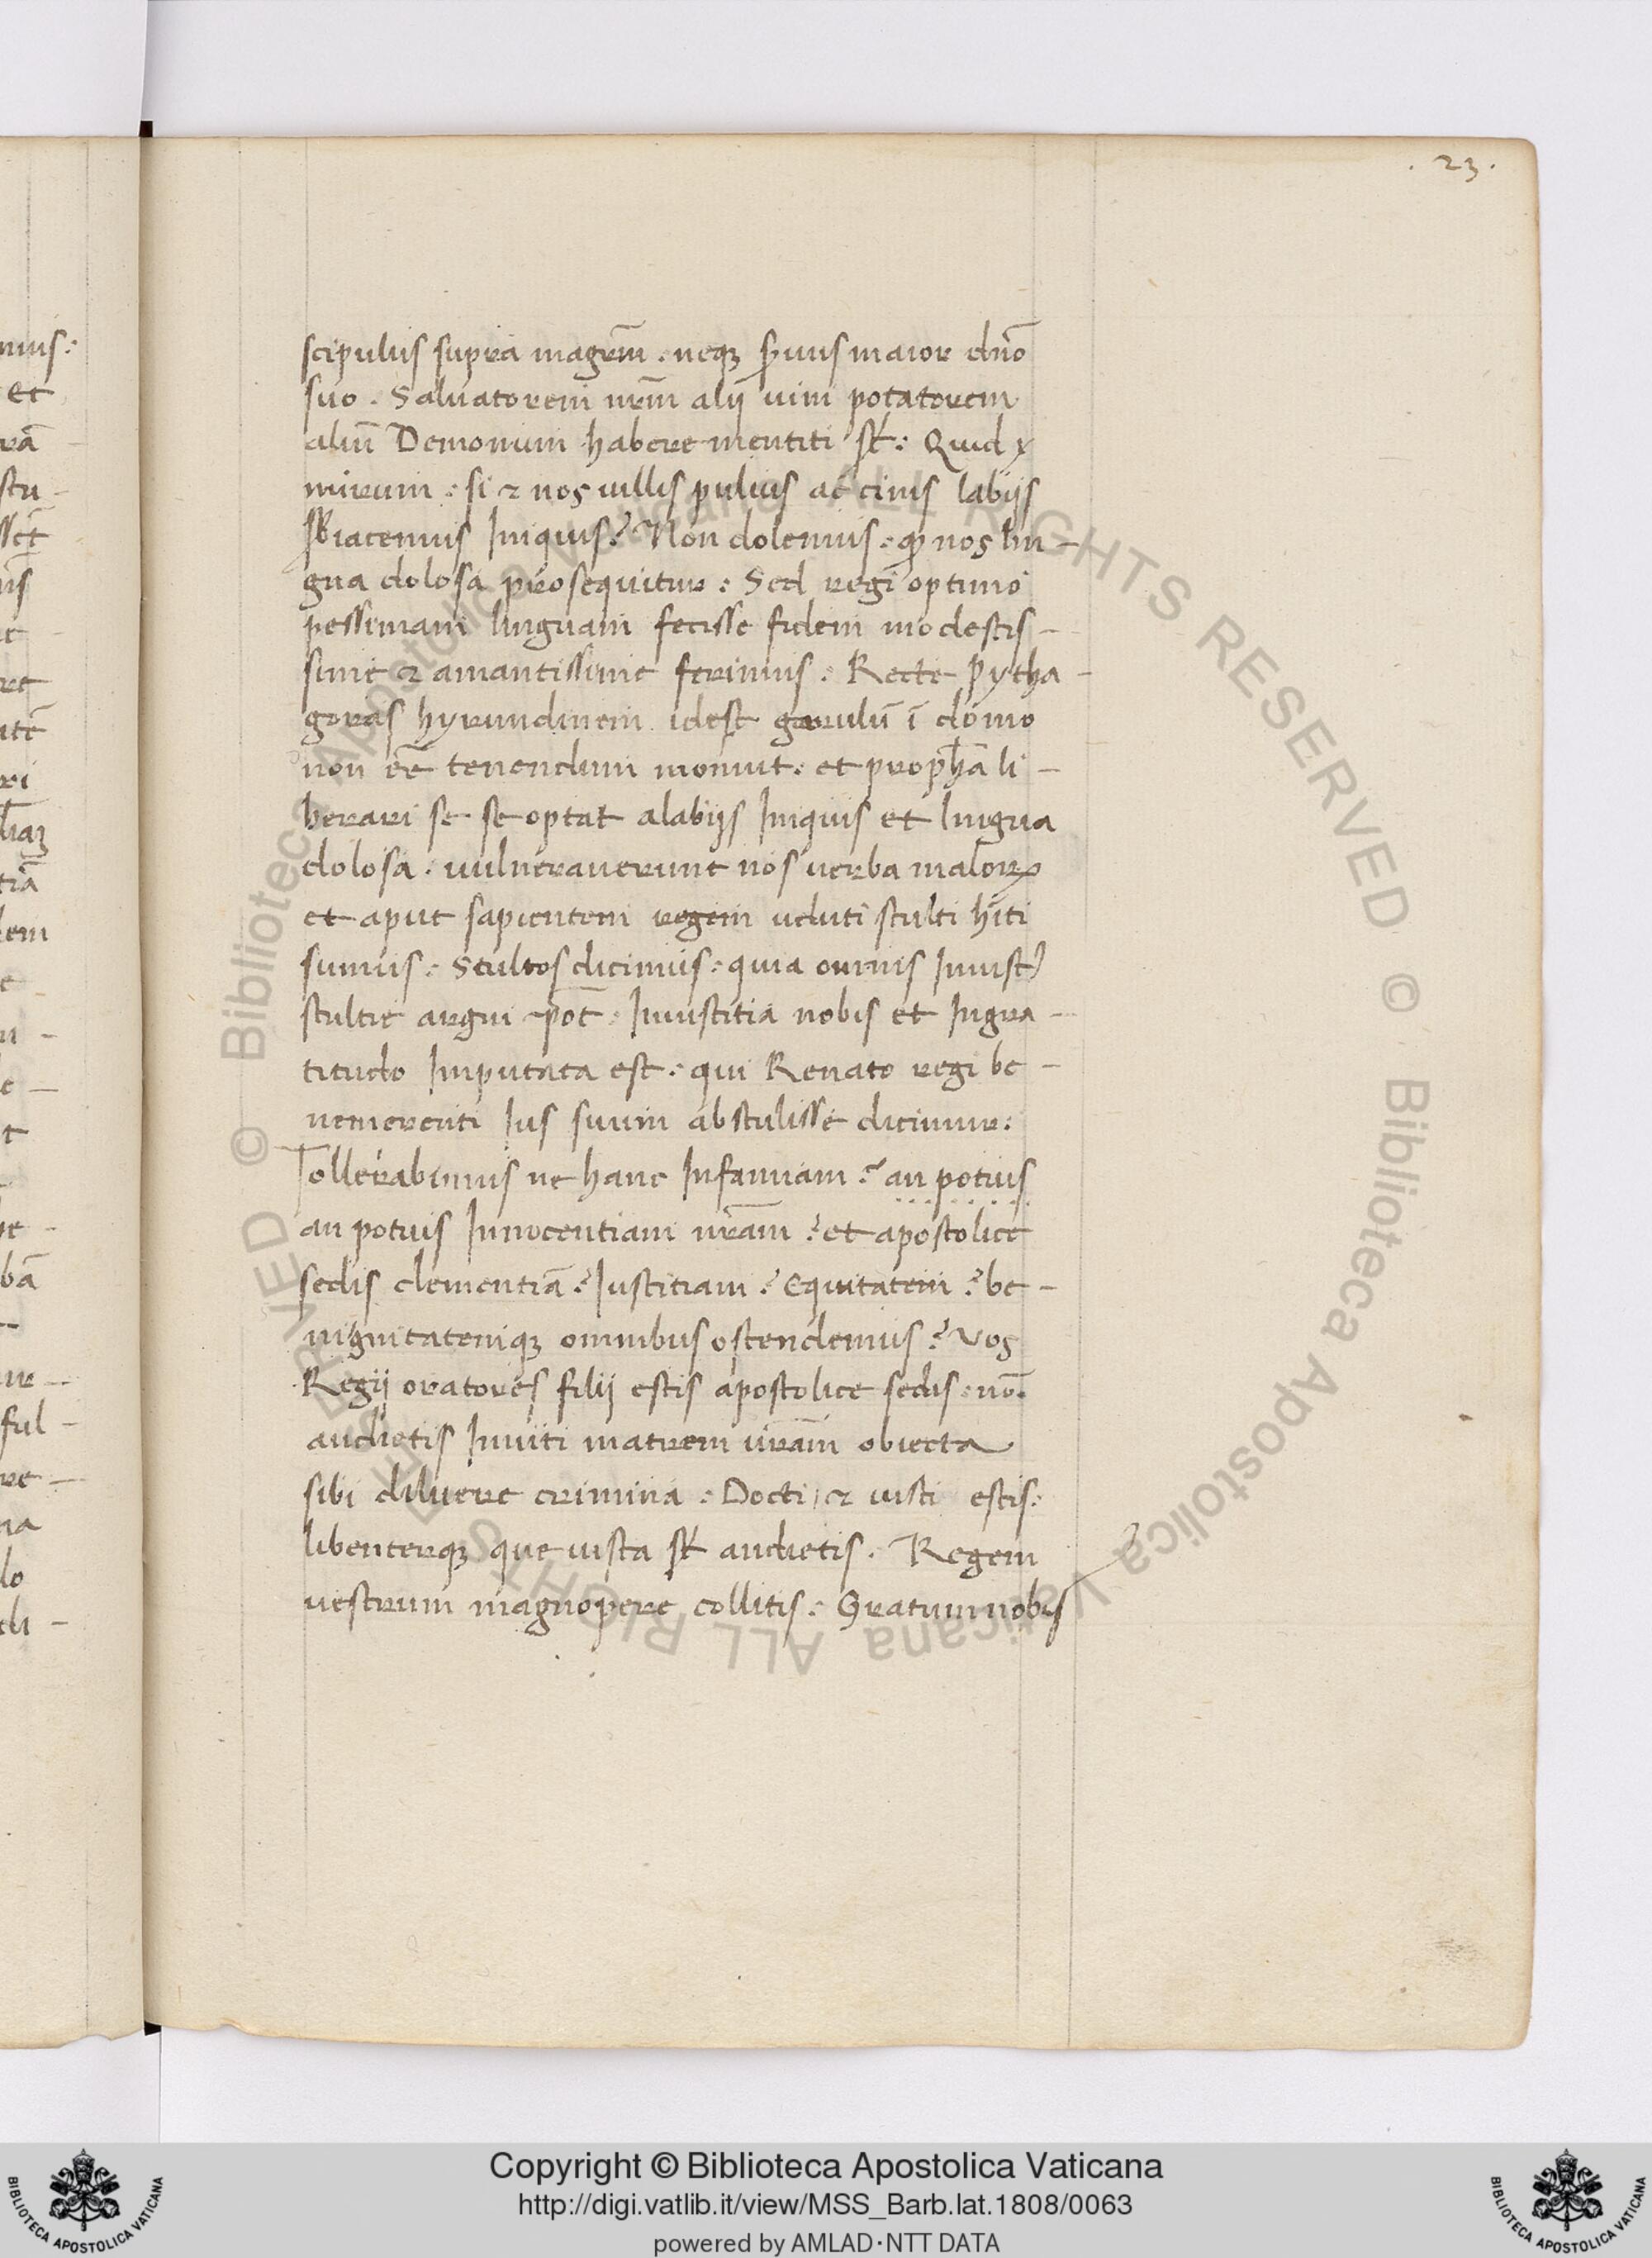 . 23 .
scipulus supra magr̄m . neqꝫ ꝑuus maior dn̄o
suo . Saluatorem nr̄m alij uini potatorem
aliū Demonium habere mentiti st̄ : Quid
mirum : si & nos uillis ac labijs
Iniquis ? Non dolemus : nos lin -
gua dolosa prosequitur : Sed regi optimo
pessimam linguam fecisse fidem modestis -
sime & amantissime ferimus : Recte Pytha -
goras hyrundinem idest garulū ī domo
non eē tenendum monuit : et propħa li -
berari se se optat alabijs Iniquis et lingua
dolosa . uulnerauerunt nos uerba maloꝝ
et aput sapientem regem ueluti stulti hīti
sumus : Stultos dicimus : quia omnis Iniust
stultie argui pōt : Iniustitia nobis et Ingra -
titudo Imputata est : qui Renato regi be -
nemerenti Ius suum abstulisse dicimur :
Tollerabimus ne hanc Infamiam ? an potius
an potuis Innocentiam nr̄am ? et apostolice
sedis clementiā ? Iustitiam ? Equitatem ? be -
nignitatemqꝫ omnibus ostendemus ? Vos
Regij oratores filij estis apostolice sedis : nō
audietis Inuiti matrem ur̄am obiecta
sibi diluere crimina : Docti & iusti estis :
libenterqꝫ que iusta st̄ audietis . Regem
uestrum magnopere collitis : Gratum nobis
Copyright © Biblioteca Apostolica Vaticana
http://digi.vatlib.it/view/MSS_Barb.lat.1808/0063
powered by AMLAD·NTT DATA